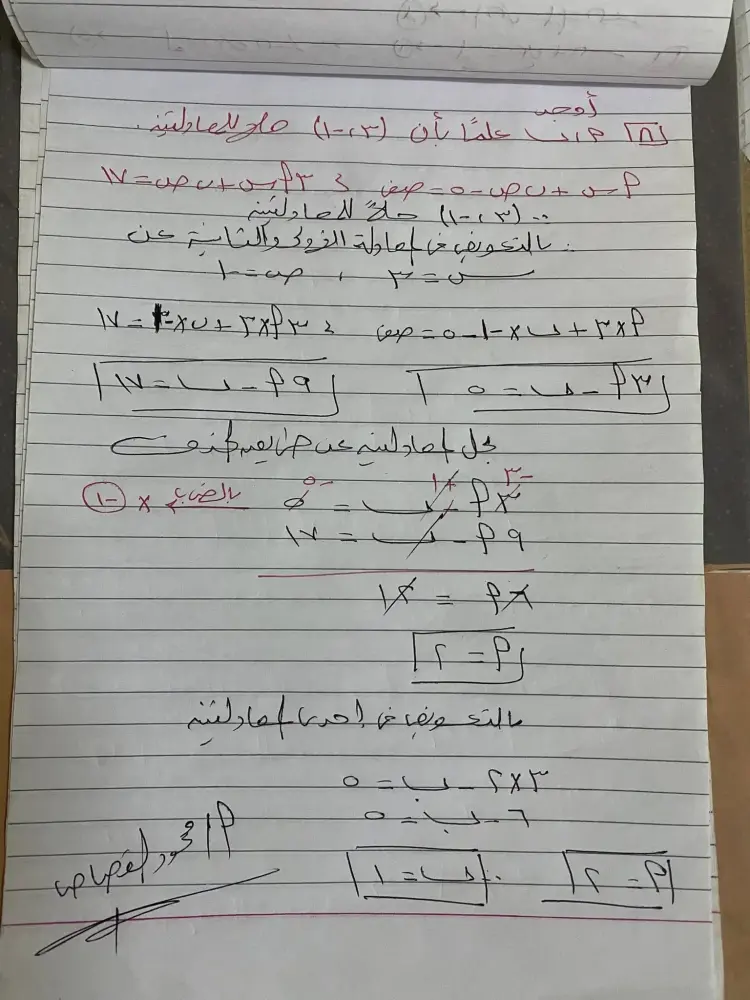 أوجد
[٨] ٢، ب علمًا بأن (٣، -١) حلاً للمعادلتين.
٢س + ب ص - ٥ = صفر ، ٣٢س + ب ص = ١٧
∵ (٣، -١) حلاً للمعادلتين
∴ بالتعويض في المعادلة الأولى والثانية عن
س = ٣ ، ص = -١
٢×٣ + ب×-١ - ٥ = صفر ، ٣٢×٣ + ب×-١ = ١٧
٣٢ - ب = ٥ ٩٢ - ب = ١٧
بحل المعادلتين
-٣ +١ -٥
٣٢ - ب = ٥ بالضرب × (-١)
٩٢ - ب = ١٧
٦٢ = ١٢
٢ = ٢
بالتعويض في إحدى المعادلتين
٣×٢ - ب = ٥
٦ - ب = ٥
٢ = ٢ ∴ ب = ١
أ/ محمود القصاص